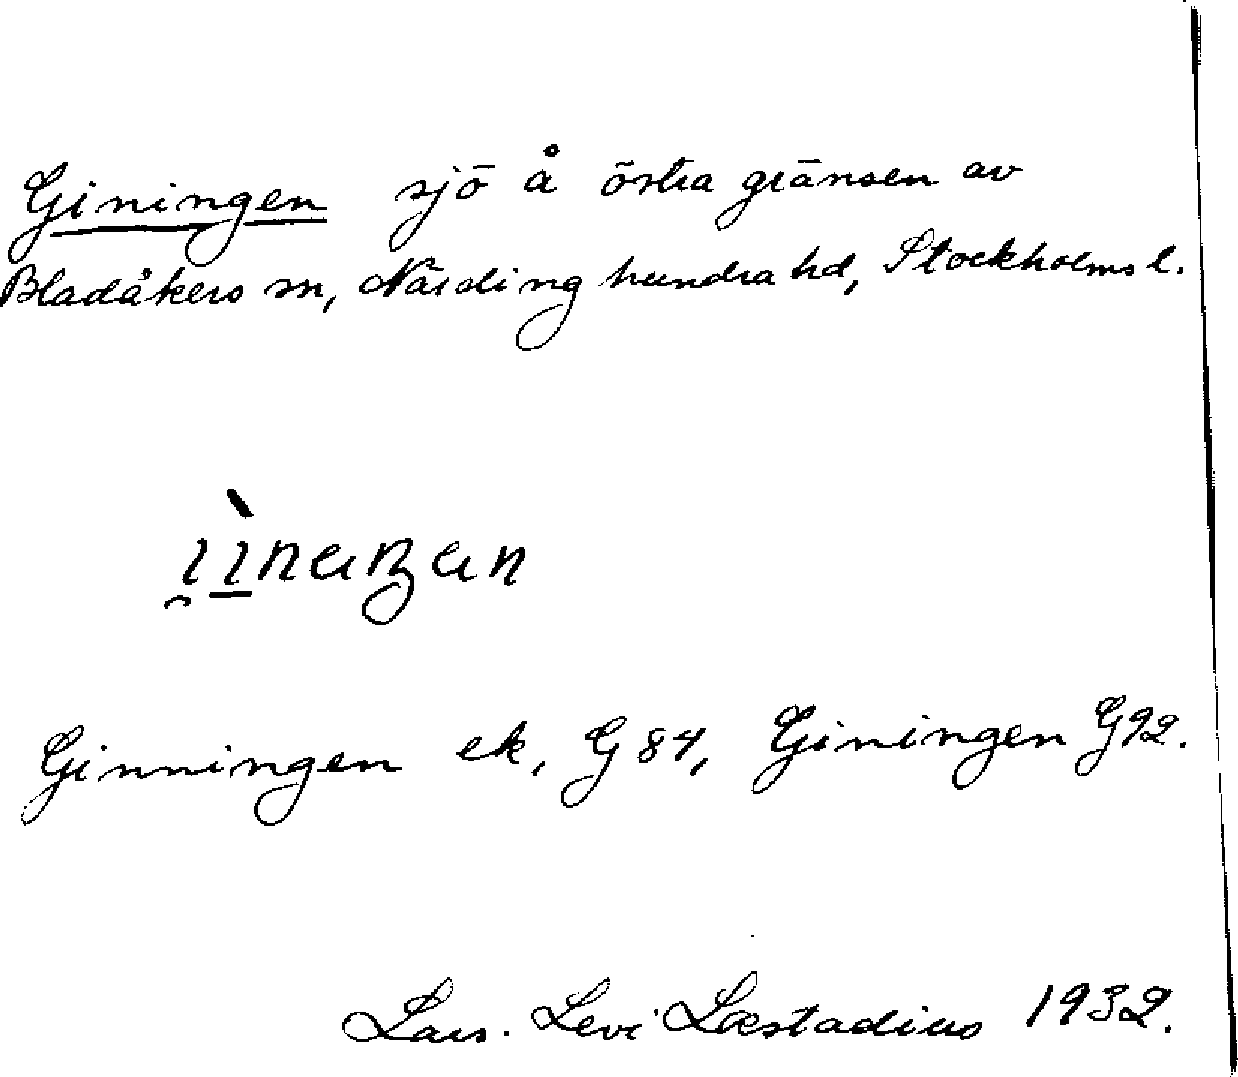 Giningen sjö å östra gränsen av
Bladåkers sn, Närdinghundra hd, Stockholms l.
Ginningen ek, G 84, Giningen G92.
Lars. Levi Læstadius 1932.